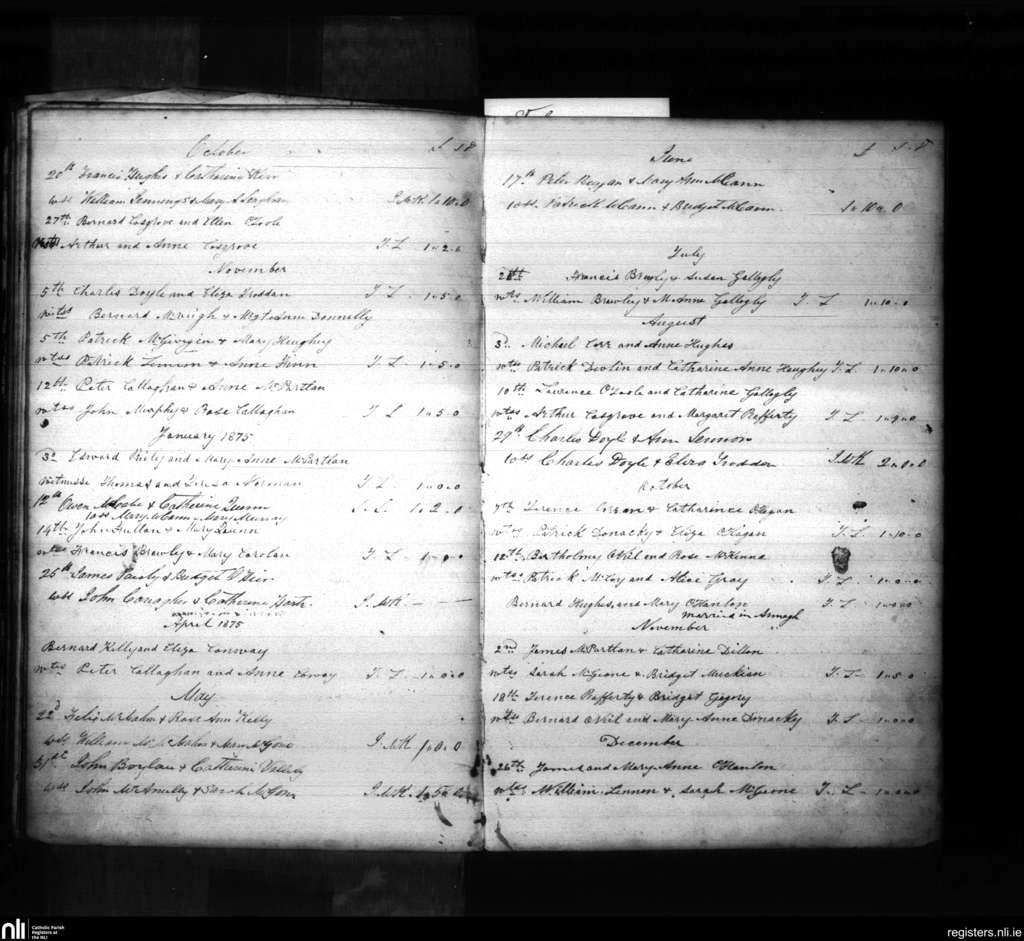 October £ s d
20th Francis Hughes & Catherine Kerr
wtss William Jennings & Mary A J. McK 1 . 10 . 0
27th Bernard Cosgrove and Ellen O'Toole
Arthur and Anne Cosgrove T. L 1 . 2 . 0
November
5th Charles Doyle and Eliza Troddan T L 1 . 5 . 0
Bernard & Mgt Anne Donnelly
5th Patrick & Mary Heughey
wtss Patrick & Anne T. L 1 . 5 . 0
12th Peter Callaghan & Anne McPartlan
wtss John Murphy & Rose Callaghan T L 1 . 5 . 0
January 1875
3d Edward and Mary Anne McPartlan
Witnesses Thomas and Teresa Norman T L 1 . 0 . 0
12th Owen McCabe & Catherine Quinn L. L. 1 . 2 . 0
wtss Mary McCann Mary Murray
14th John & Mary
wtss Francis Brawley & Mary Carolan T. L 1 . 0 . 0
25th James & Bridget
wtss John Conagher & Catherine J. McK — —
April 1875
Bernard Kelly and Eliza Conway
wtss Peter Callaghan and Anne Conway T. L 1 . 0 . 0
May
22d Felix McMahon & Rose Ann Kelly
wtss William & J. McK 1 . 0 . 0
31st John Boylan & Catherine
wtss John & Sarah J. McK 1 . 5 . 0
June £ s d
17th Peter & Mary Ann McCann
wtss Patrick McCann & Bridget McCann 1 . 10 . 0
July
Francis Brawley & Susan Gallogly
wtss William Brawley & M. Anne Gallogly T L 1 . 10 . 0
August
3d. Michael Corr and Anne Hughes
wtss Patrick Devlin and Catharine Anne Heughey T. L 1 . 10 . 0
10th Lawrence O'Toole and Catharine Gallogly
wtss Arthur Cosgrove and Margaret Rafferty T. L 1 . 0 . 0
29th Charles Doyle & Ann Lennon
wtss Charles Doyle & Eliza Troddan J. McK 2 . 0 . 0
October
7th Terence and Catharine O'Hagan
wtss Patrick Donacky & Eliza O'Hagan T. L 1 . 10 . 0
12th Bartholmy O'Neil and Rose McKenna
wtss Patrick McCoy and Alice Gray T. L 1 . 0 . 0
Bernard Hughes, and Mary O'Hanlon T L 1 . 0 . 0
married in Armagh
November
2nd James McPartlan & Catharine Dillon
wtss Sarah McGeone & Bridget Muckian T. L 1 . 5 . 0
18th Terence Rafferty & Bridget Gegory
wtss Bernard O'Neil and Mary Anne Donacky T. L 1 . 0 . 0
December
26th James and Mary Anne O'Hanlon
wtss William Lennon & Sarah McGeone T. L 1 . 0 . 0
nli Catholic Parish
Registers at
the NLI
registers.nli.ie